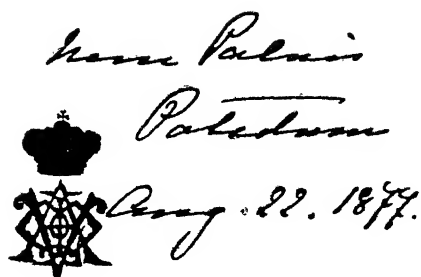 neue Palais
Potsdam
Aug. 22. 1877.